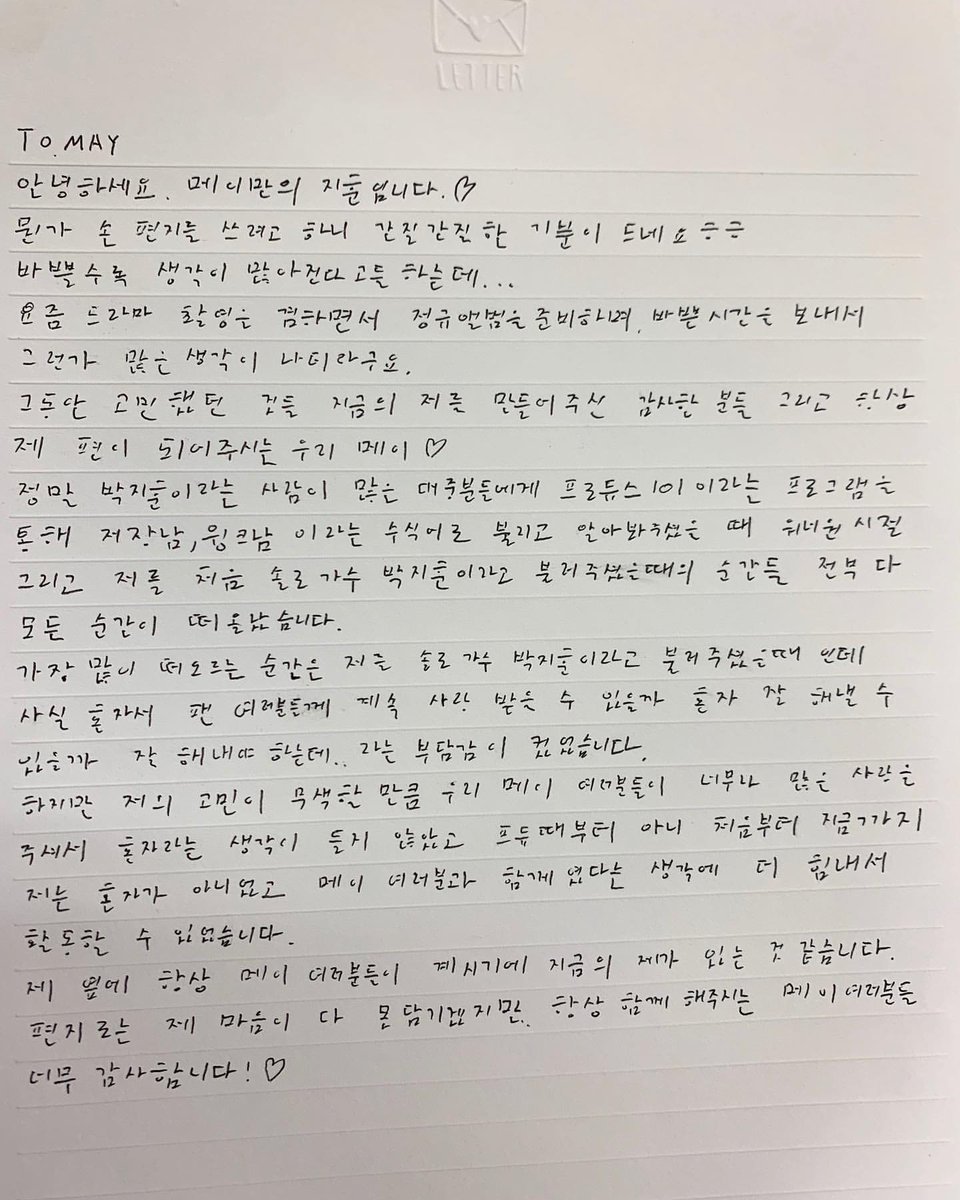 LETTER
TO.MAY
안녕하세요. 메이만의 지훈입니다.♡
뭔가 손 편지를 쓰려고 하니 간질간질한 기분이 드네요ㅎㅎ
바쁠수록 생각이 많아진다고들 하는데...
요즘 드라마 촬영을 겸하면서 정규앨범을 준비하며, 바쁜 시간을 보내서
그런가 많은 생각이 나더라구요.
그동안 고민했던 것들 지금의 저를 만들어주신 감사한 분들 그리고 항상
제 편이 되어주시는 우리 메이♡
정말 박지훈이라는 사람이 많은 대중분들에게 프로듀스101이라는 프로그램을
통해 저장남, 윙크남 이라는 수식어로 불리고 알아봐주셨을 때 워너원시절
그리고 저를 처음 솔로가수 박지훈이라고 불러주셨을때의 순간들 전부 다
모든 순간이 떠올랐습니다.
가장 많이 떠오르는 순간은 저를 솔로가수 박지훈이라고 불러주셨을때 인데
사실 혼자서 팬 여러분들께 계속 사랑 받을 수 있을까 혼자 잘 해낼 수
있을까 잘 해내야 하는데.. 라는 부담감이 컸었습니다.
하지만 저의 고민이 무색할 만큼 우리 메이 여러분들이 너무나 많은 사랑을
주셔서 혼자라는 생각이 들지 않았고 프듀때부터 아니 처음부터 지금까지
저는 혼자가 아니었고 메이 여러분과 함께였다는 생각에 더 힘내서
활동할 수 있었습니다.
제 옆에 항상 메이 여러분들이 계시기에 지금의 제가 있는 것 같습니다.
편지로는 제 마음이 다 못담기겠지만, 항상 함께 해주시는 메이여러분들
너무 감사합니다!♡